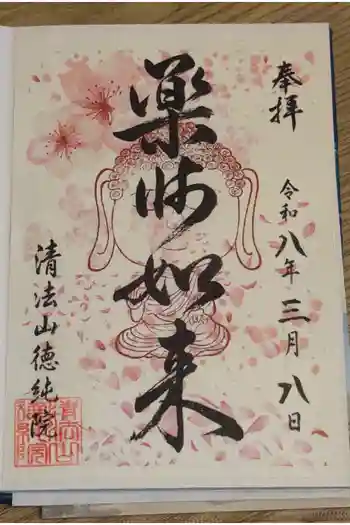 奉拝
令和八年三月八日
薬師如来
清法山徳純院